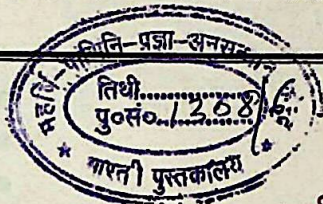 महर्षि-पाणिनि-प्रज्ञा-अनुसन्धान
तिथी..............
पु०सं० 1208
पुस्तकालय